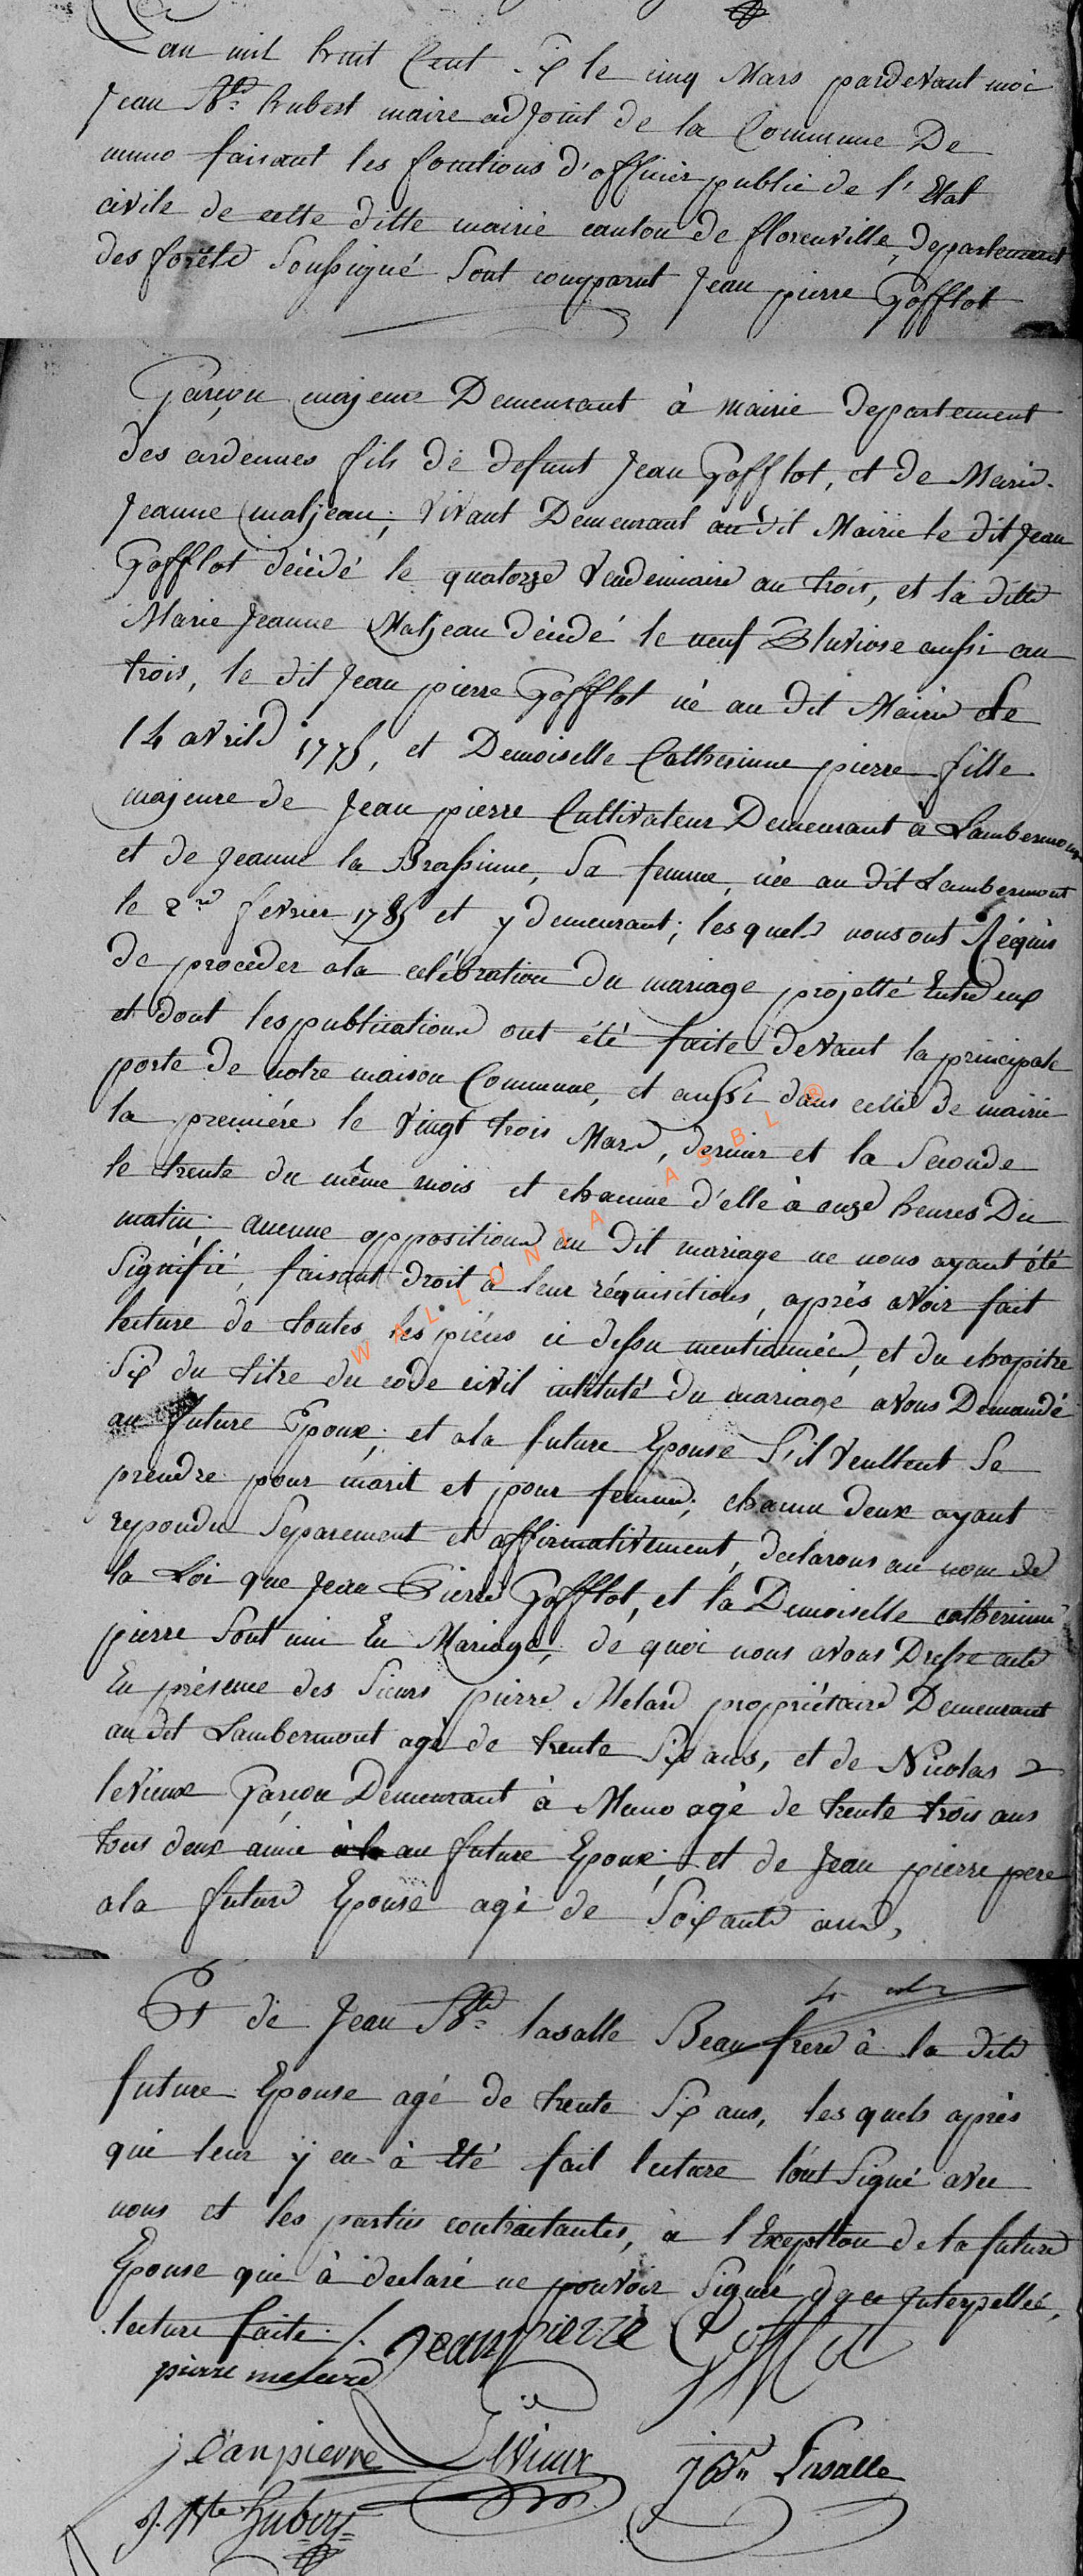 L'an mil huit Cent Six le cinq Mars pardevant moi
Jean Bte hubert maire adjoint de la Commune De
muno faisant les fonctions d'officier public de l'Etat
civile de cette ditte mairie canton de florenville, departement
des forêts Soussigné Sont comparut Jean pierre Gofflot
Garçon majeure Demeurant à Mairie departement
des ardennes fils de defunt Jean Gofflot, et de Marie
Jeanne maljean; vivant Demeurant au dit Mairie le dit Jean
Gofflot décédé le quatorze Vendemiaire an trois, et la ditte
Marie Jeanne Maljean décédé le neuf Pluviose aussi an
trois, le dit Jean pierre Gofflot né au dit Mairie le
14 avril 1775, et Demoiselle Catherinne pierre fille
majeure de Jean pierre Cultivateur Demeurant à Lambermont
et de Jeanne la Brassinne, Sa femme, née au dit Lambermont
le 2 fevrier 1785 et y demeurant; les quels nous ont Réquis
de procéder ala celébration du mariage projetté Entre eux
et dont les publications ont été faite devant la principale
porte de notre maison Commune, et aussi dans celle de mairie
la premiére le Vingt trois Mars, dernier et la Seconde
le trente du même mois et chacune d'elle à onze heures Du
matin; aucune opposition au dit mariage ne nous ayant été
Signifié, faisant droit à leur réquisitions, aprés avoir fait
lecture de toutes les piéces ci dessu mentionnée, et du chapitre
Six du titre du code civil intitulé du mariage avons Demandé
au future Epoux; et ala future Epouse S'il veullent Se
prendre pour marit et pour femme; chacun deux ayant
repondu Separement et affirmativement, declarons au nom de
la Loi que Jean Pierre Gofflot, et la Demoiselle catherinne
pierre Sont uni En Mariage; de quoi nous avons Dressé acte
En présence des Sieurs pierre Melard propriétaire Demeurant
au dit Lambermont agé de trente Six ans, et de Nicolas
leVieux Garçon Demeurant à Muno agé de trente trois ans
tous deux amie à la au future Epoux; et de Jean pierre pere
ala future Epouse agé de Soixante ans,
Et de Jean Bte lasalle Beau frere à la dite
future Epouse agé de trente Six ans, les quels aprés
que leur y en à Eté fait lecture l'ont Signé avec
nous et les parties contractantes, à l'Exception de la future
Epouse qui à declaré ne pouvoir Signée de ce Interpellée,
lecture faite /. Jean pierre Gofflot
pierre
jean pierre LeVieux JBte Lasalle
J. Bte hubert
WALLONIA ASBL ®